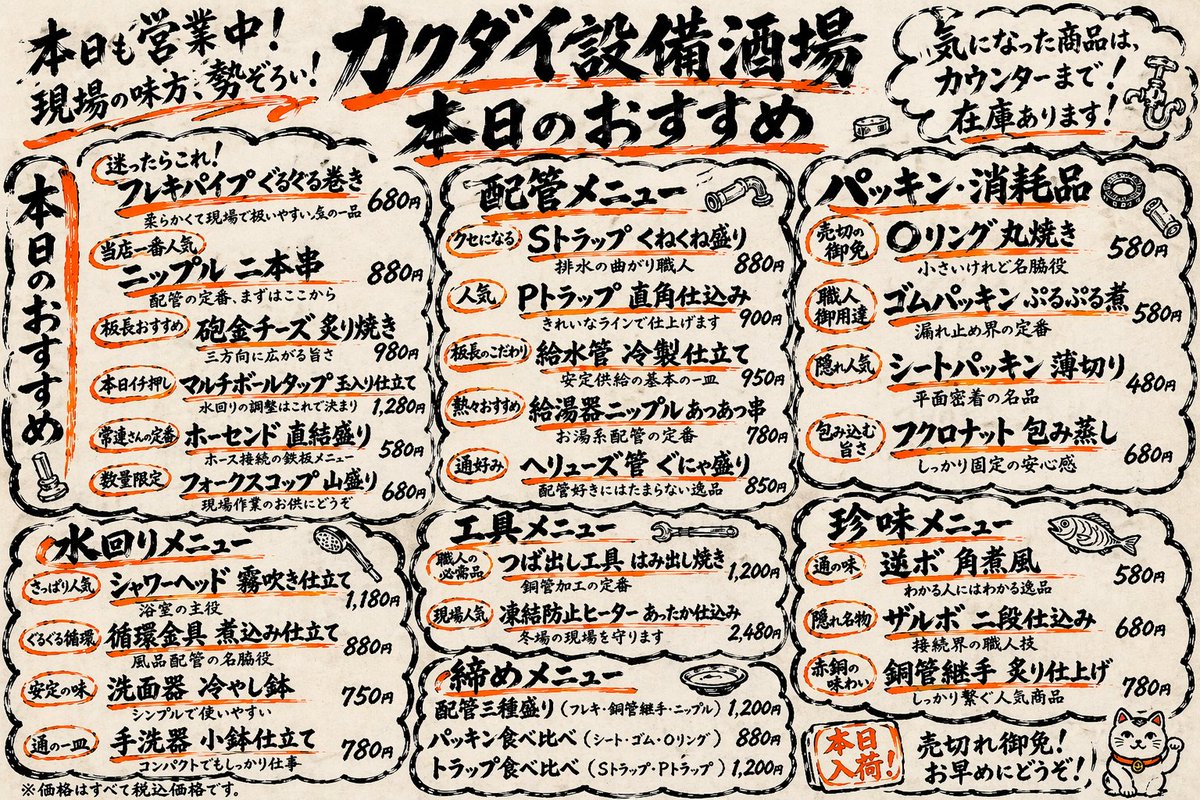 本日も営業中!
現場の味方、勢ぞろい!
カクダイ設備酒場
本日のおすすめ
気になった商品は、
カウンターまで!
在庫あります!
本日のおすすめ
迷ったらこれ!
フレキパイプ ぐるぐる巻き 680円
柔らかくて現場で扱いやすい定の一品
当店一番人気
ニップル 二本串 880円
配管の定番、まずはここから
板長おすすめ 砲金チーズ 炙り焼き
三方向に広がる旨さ 980円
本日イチ押し マルチボールタップ 玉入り仕立て
水回りの調整はこれで決まり 1,280円
常連さんの定番 ホーセンド 直結盛り
ホース接続の鉄板メニュー 580円
数量限定 フォークスコップ 山盛り 680円
現場作業のお供にどうぞ
配管メニュー
クセになる Sトラップ くねくね盛り
排水の曲がり職人 880円
人気 Pトラップ 直角仕込み
きれいなラインで仕上げます 900円
板長のこだわり 給水管 冷製仕立て
安定供給の基本の一皿 950円
熱々おすすめ 給湯器ニップル あつあつ串
お湯系配管の定番 780円
通好み ヘリューズ管 ぐにゃ盛り
配管好きにはたまらない逸品 850円
パッキン・消耗品
売切の
御免 Oリング 丸焼き 580円
小さいけれど名脇役
職人
御用達 ゴムパッキン ぷるぷる煮 580円
漏れ止め界の定番
隠れ人気 シートパッキン 薄切り 480円
平面密着の名品
包み込む
旨さ フクロナット 包み蒸し 680円
しっかり固定の安心感
水回りメニュー
さっぱり人気 シャワーヘッド 霧吹き仕立て
浴室の主役 1,180円
ぐるぐる循環 循環金具 煮込み仕立て
風品配管の名脇役 880円
安定の味 洗面器 冷やし鉢 750円
シンプルで使いやすい
通の一皿 手洗器 小鉢仕立て 780円
コンパクトでもしっかり仕事
※価格はすべて税込価格です。
工具メニュー
職人の
必需品 つば出し工具 はみ出し焼き 1,200円
銅管加工の定番
現場人気 凍結防止ヒーター あったか仕込み
冬場の現場を守ります 2,480円
締めメニュー
配管三種盛り(フレキ・銅管継手・ニップル) 1,200円
パッキン食べ比べ(シート・ゴム・Oリング) 880円
トラップ食べ比べ(Sトラップ・Pトラップ) 1,200円
珍味メニュー
通の味 逆ボ 角煮風 580円
わかる人にはわかる逸品
隠れ名物 ザルボ 二段仕込み 680円
接続界の職人技
赤銅の
味わい 銅管継手 炙り仕上げ 780円
しっかり繋ぐ人気商品
本日
入荷!
売切れ御免!
お早めにどうぞ!